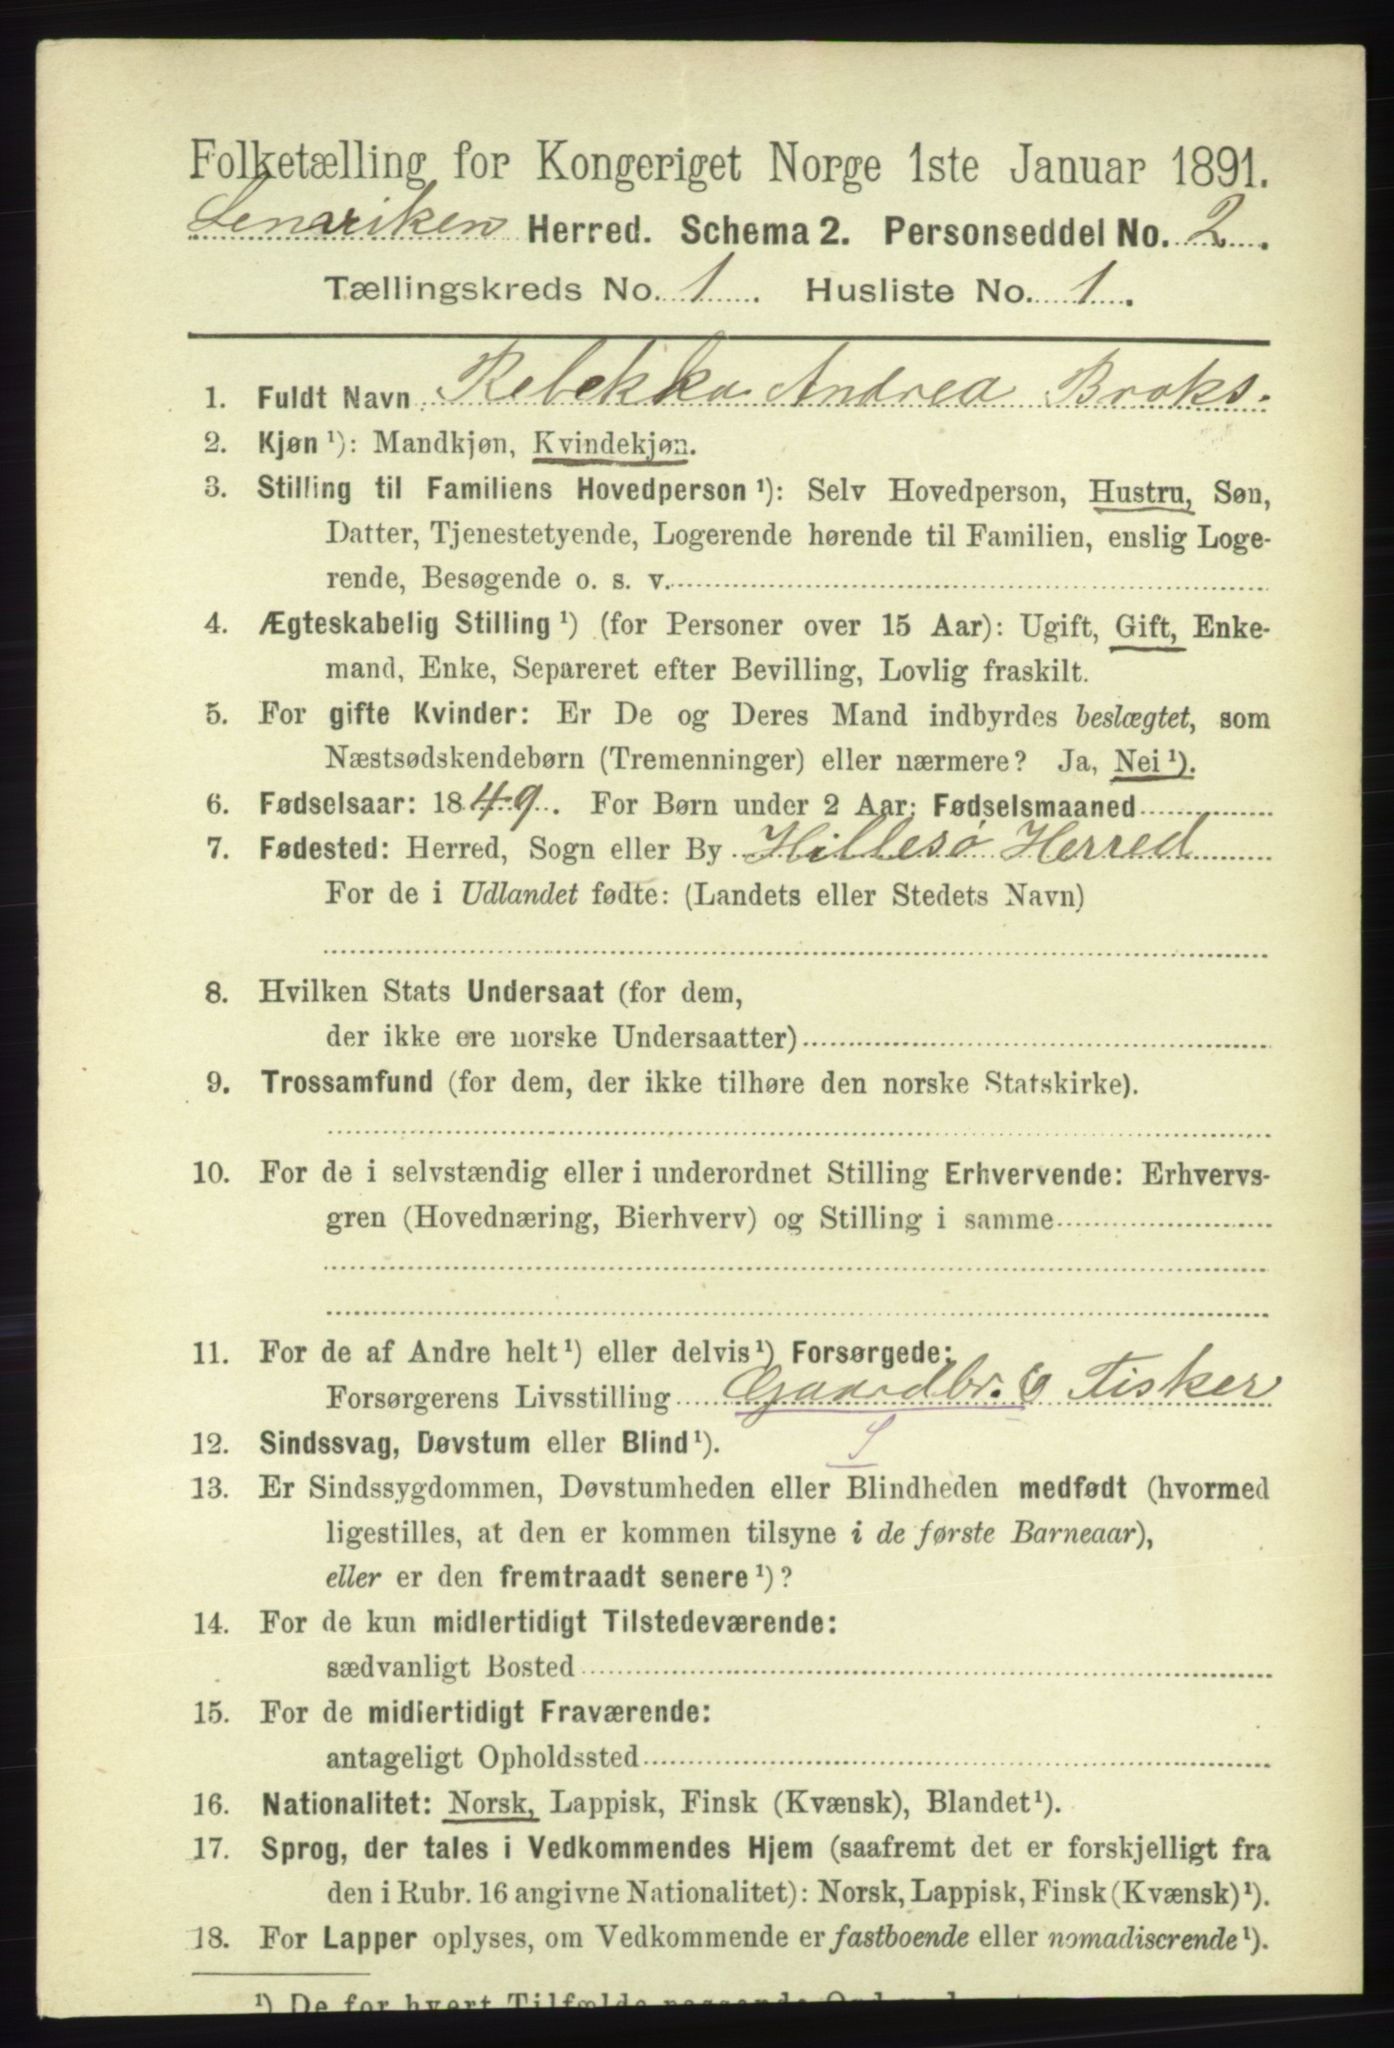 Folketælling for Kongeriget Norge 1ste Januar 1891.
Lenviken Herred. Schema 2. Personseddel No. 2.
Tællingskreds No. 1. Husliste No. 1.
1. Fuldt Navn Rebekka Andrea Broks.
2. Kjøn ¹): Mandkjøn, Kvindekjøn.
3. Stilling til Familiens Hovedperson ¹): Selv Hovedperson, Hustru, Søn,
Datter, Tjenestetyende, Logerende hørende til Familien, enslig Loge-
rende, Besøgende o. s. v.
4. Ægteskabelig Stilling ¹) (for Personer over 15 Aar): Ugift, Gift, Enke-
mand, Enke, Separeret efter Bevilling, Lovlig fraskilt.
5. For gifte Kvinder: Er De og Deres Mand indbyrdes beslægtet, som
Næstsødskendebørn (Tremenninger) eller nærmere? Ja, Nei ¹).
6. Fødselsaar: 1849. For Børn under 2 Aar: Fødselsmaaned
7. Fødested: Herred, Sogn eller By Hillesø Herred
For de i Udlandet fødte: (Landets eller Stedets Navn)
8. Hvilken Stats Undersaat (for dem,
der ikke ere norske Undersaatter)
9. Trossamfund (for dem, der ikke tilhøre den norske Statskirke).
10. For de i selvstændig eller i underordnet Stilling Erhvervende: Erhvervs-
gren (Hovednæring, Bierhverv) og Stilling i samme
11. For de af Andre helt ¹) eller delvis ¹) Forsørgede:
Forsørgerens Livsstilling Gaardbr. & Fisker
S
12. Sindssvag, Døvstum eller Blind ¹).
13. Er Sindssygdommen, Døvstumheden eller Blindheden medfødt (hvormed
ligestilles, at den er kommen tilsyne i de første Barneaar),
eller er den fremtraadt senere ¹)?
14. For de kun midlertidigt Tilstedeværende:
sædvanligt Bosted
15. For de midlertidigt Fraværende:
antageligt Opholdssted
16. Nationalitet: Norsk, Lappisk, Finsk (Kvænsk), Blandet ¹).
17. Sprog, der tales i Vedkommendes Hjem (saafremt det er forskjelligt fra
den i Rubr. 16 angivne Nationalitet): Norsk, Lappisk, Finsk (Kvænsk) ¹).
18. For Lapper oplyses, om Vedkommende er fastboende eller nomadiserende ¹).
¹) De for hvert Tilfælde passende